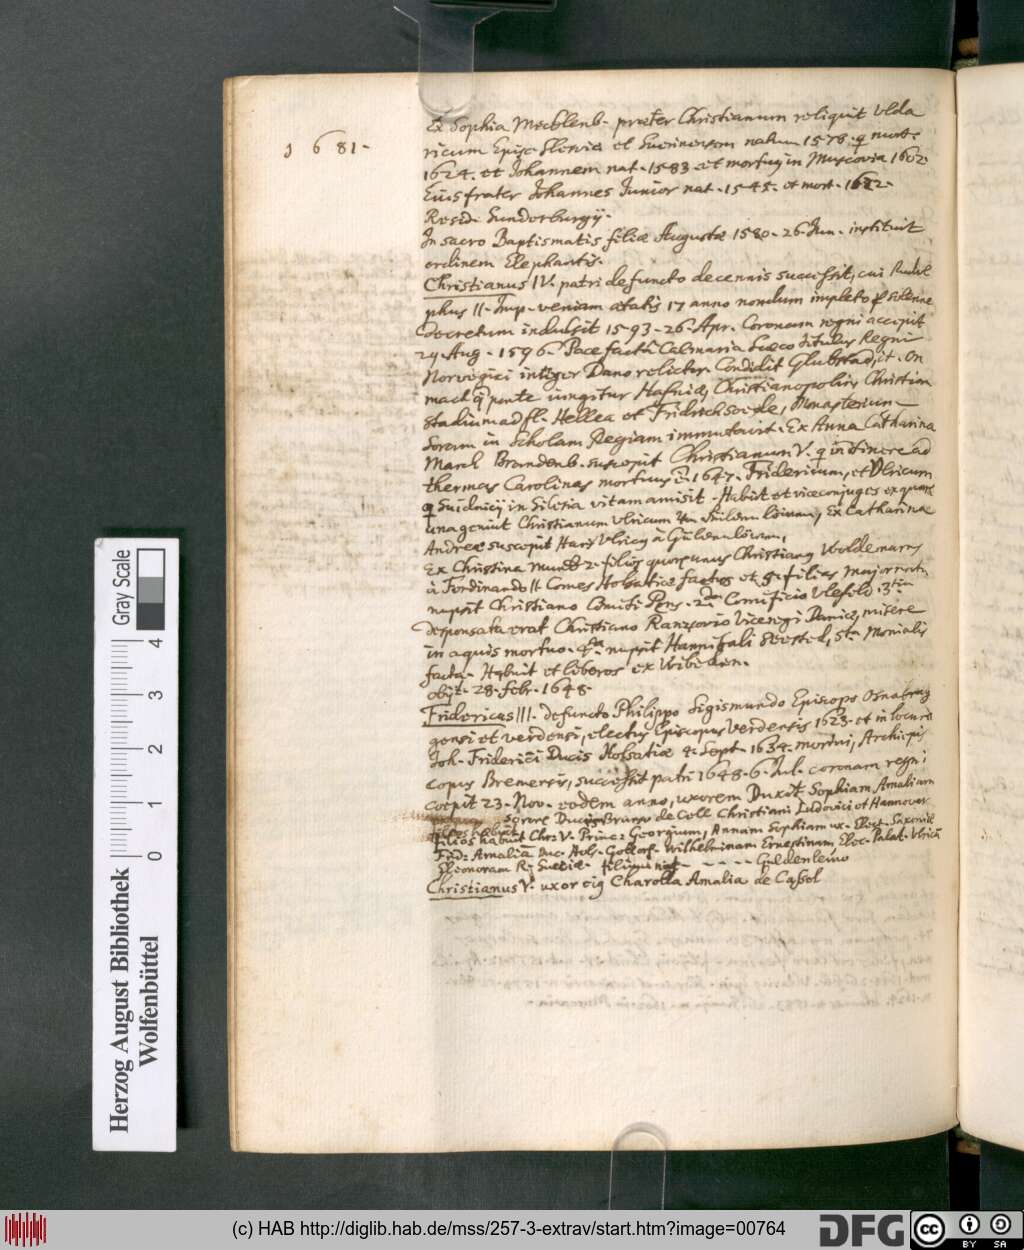 1681.
Ex Sophia Mecklenb. praeter Christianum reliquit Ulda
ricum Episc. Slesviae et Suerinensem natum 1578. q mort.
1624. et Johannem nat. 1583 et mortuu in Muscovia 1602
Eius frater Johannes Junior nat. 1545. et mort. 1622.
Resid. Sunderburgij.
In sacro Baptismatis filiae Augustae 1580. 26. Jun. instituit
ordinem Elephantis.
Christianus IV. patri defuncto decennis successit, cui Rudol
phus II. Imp. veniam aetatis 17 anno nondum impleto
decretum indulsit 1593. 26. Apr. Coronam regni accepit
29. Aug. 1596. Pace facta Calmaria Sueco titulus Regni
Norvegici integer Dano relictus. Condidit Glukstad, it.
mack q ponte iungitur Hafniae, Christianopolin, Christian
stadium ad fl. Hellea et Fridrichsoede, Monasterium
Soram in Scholam Regiam immutavit. Ex Anna Catharina
March Brandenb. suscepit Christianum V. q in itinere ad
thermas Carolinas mortuus e 1647. Fridericum, et Ulricum
q Suidnicij in Silesia vitam amisit. Habuit et viceconjuges ex quarum
una genuit Christianum Ulricum Guldenlöwium, Ex Catharina
Andreae suscepit Hans Ulricum à Güldenlöwen,
Ex Christina Munck 2. filios quorum unus Christianus Woldemarus
à Ferdinando II Comes Holsatiae factus et 5. filias major natu
nupsit Christiano Comiti Pens. 2da Cornificio Ulefeld. 3tia
desponsata erat Christiano Ranzovio Viceregi Daniae, misere
in aquis mortuo. 4ta nupsit Hannibali Seested, 5ta Monialis
facta. Habuit et liberos ex Wibeden.
obijt 28. febr. 1648.
Fridericus III. defuncto Philippo Sigismundo Episcopo Osnabrug
gensi et Verdensi, electus Episcopus Verdensis 1623. et in locum
Joh. Friderici Ducis Holsatiae 4. Sept. 1634. mortui, Archiepis
copus Bremensis, successit patri 1648. 6. Jul. coronam regni
coepit 23. Nov. eodem anno, uxorem Duxit Sophiam Amaliam
sororē Ducis Bruns. de Cell Christiani Ludovici et Hannover
filios habuit Chr: V. Princ: Georgium, Annam Sophiam ux. Elect. Saxoniae
Frid: Amaliā Duc. Hols. Gottorf. Wilhelminam Ernestinam Elec. Palat. Ulricā
Eleonoram R. Sueciae. filium nat. - - - - Guldenlewo
Christianus V. uxor eig Charolta Amalia de Cassel
Herzog August Bibliothek
Wolfenbüttel
0 1 2 3 4
Gray Scale
(c) HAB http://diglib.hab.de/mss/257-3-extrav/start.htm?image=00764
DFG
cc
BY SA